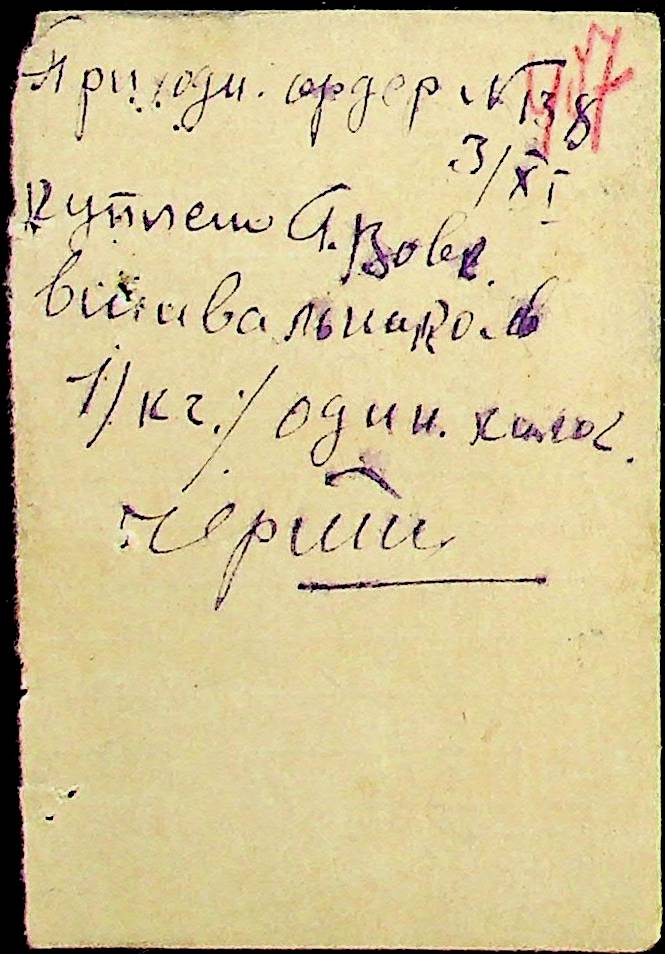 Приходн. ордер № 138
3/XI
куплено А. Вовк
вишивальником
1/кг./ один. килог.